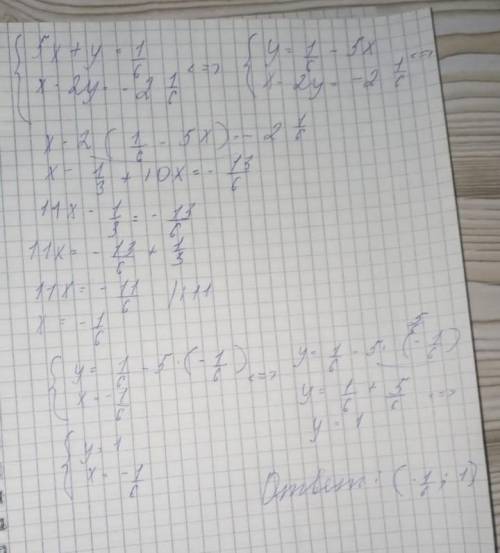 { 5x + y = 1/6
x - 2y = -2 1/6 <=> { y = 1/6 - 5x
x - 2y = -2 1/6 <=>
x - 2 (1/6 - 5x) = -2 1/6
x - 1/3 + 10x = - 13/6
11x - 1/3 = - 13/6
11x = - 13/6 + 1/3
11x = - 11/6 | :11
x = - 1/6
{ y = 1/6 - 5 · (- 1/6)
x = - 1/6 <=>
y = 1/6 - 5 · (- 1/6)
y = 1/6 + 5/6 <=>
y = 1
{ y = 1
x = - 1/6
Ответ: (- 1/6 ; 1)